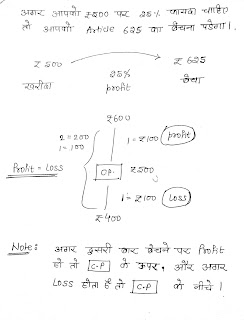 अगर आपको ₹500 पर 25% फायदा चाहिए
तो आपको Article 625 का बेचना पड़ेगा।
₹500 ₹625
खरीदा 25% profit बेचा
₹600
2 = 200
1 = 100
1 = ₹100 profit
Profit = Loss
C.P. ₹500
1 = ₹100 Loss
₹400
Note: अगर दूसरी बार बेचने पर Profit
हो तो C.P के ऊपर, और अगर
Loss होता है तो C.P के नीचे।